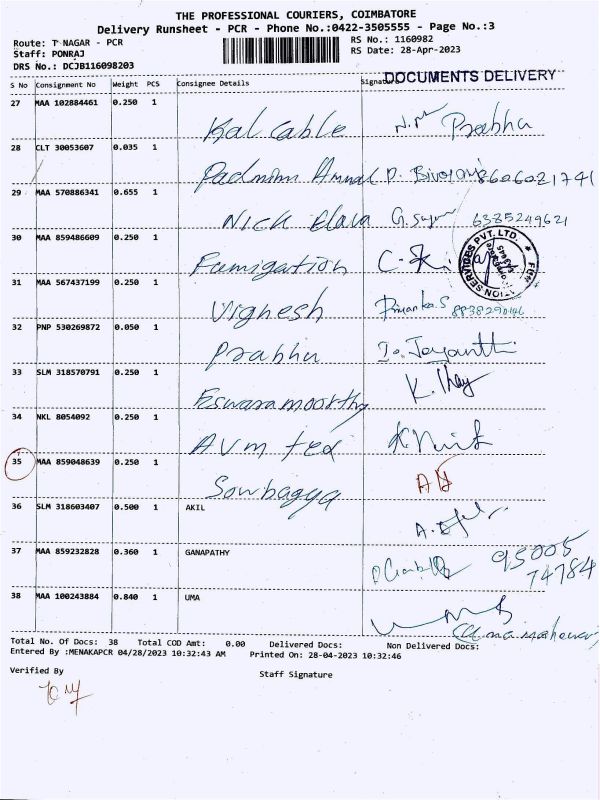 THE PROFESSIONAL COURIERS, COIMBATORE
Delivery Runsheet - PCR - Phone No.:0422-3505555 - Page No.:3
Route: T NAGAR - PCR
RS No.: 1160982
Staff: PONRAJ
RS Date: 28-Apr-2023
DRS No.: DCJB116098203
S No Consignment No Weight PCS Consignee Details Signature
DOCUMENTS DELIVERY
27 MAA 102884461 0.250 1
Kal Cable Prabhu
28 CLT 30053607 0.035 1
Padmini Ammal 8606021741
29 MAA 570886341 0.655 1
Nick 6385249621
30 MAA 859486609 0.250 1
Fumigation
SERVICES PVT. LTD.
31 MAA 567437199 0.250 1
Vighesh Priyanka.S 8838290146
32 PNP 530269872 0.050 1
Prabhu Jayanthi
33 SLM 318570791 0.250 1
Eswaramoorthy
34 NKL 8054092 0.250 1
AVM
35 MAA 859048639 0.250 1
Sowbagya
36 SLM 318603407 0.500 1 AKIL
37 MAA 859232828 0.360 1 GANAPATHY
95005
74784
38 MAA 100243884 0.840 1 UMA
Total No. Of Docs: 38 Total COD Amt: 0.00 Delivered Docs: Non Delivered Docs:
Entered By :MENAKAPCR 04/28/2023 10:32:43 AM Printed On: 28-04-2023 10:32:46
Verified By
Staff Signature